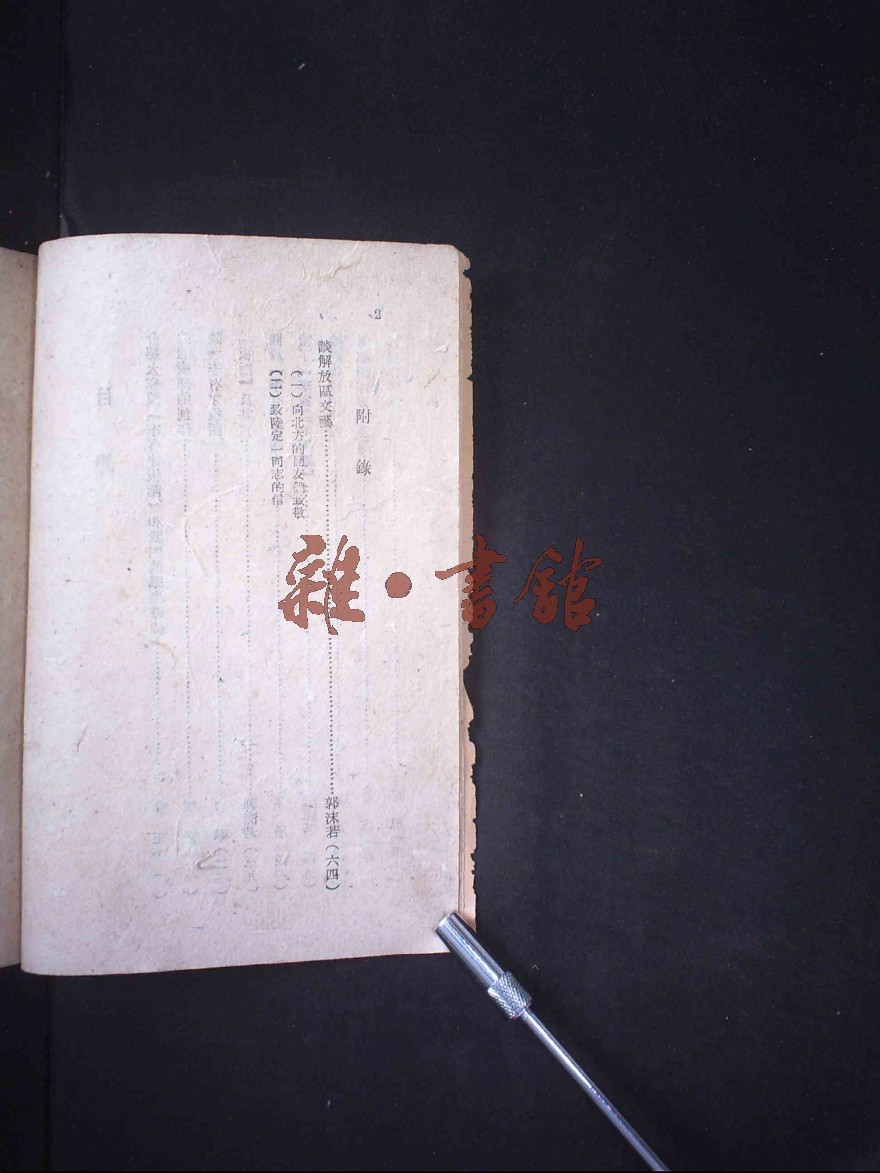 2
附錄
談解放區文藝……郭沫若(六四)
(一)向北方的朋友們致敬
(二)致陸定一同志的信
雜•書館